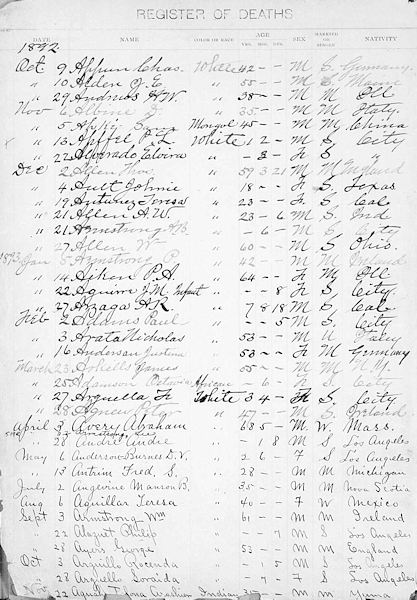 REGISTER OF DEATHS
DATE NAME COLOR OR RACE AGE YRS. MOS. DYS. SEX MARRIED OR SINGLE NATIVITY
1892
Oct 9 Appun Chas. White 42 - - M S Germany
" 10 Alden J. E. " 55 - - M S Maine
" 29 Andrus H. W. " 38 - - M M Ill
Nov 6 Albine " 35 - - M M Italy
" 5 Mongol 45 - - M M China
" 13 Apffel White 1 2 - M S City
" 22 Alvorado Elvira " - 2 - F S "
Dec 2 Allen " 59 3 21 M M England
" 4 Ault Johnie " 18 - - F S Texas
" 19 Antunez Teresa " 23 - - F S Cal
" 21 Allen A. W. " 23 - 6 M S Ind
" 21 Armstrong " - 6 - M S City
" 27 Allen W " 60 - - M S Ohio
1893 Jan 8 Armstrong P. " 42 - - M M Ireland
" 14 Aiken P. A. " 64 - - F M Ill
" 22 Aguirre J. M. Infant " - - 8 F S City
" 27 Arzaga A. R. " 7 8 18 M S Cal
Feb 2 Adams Paul " - - 5 M S City
" 3 Arata Nicholas " 53 - - M M Italy
" 16 Andersen Justine " 53 - - F M Germany
March 23 Arkells James " 55 - - M M N. Y.
" 25 Adamson Octavia African - 6 - F S City
" 27 Arguella Fr White 3 4 - F S City
" 28 Agnew Peter " 47 - - M S Ireland
April 3 Avery Abraham " 68 5 - M W. Mass.
" 28 Andre Andre " - 1 8 M S Los Angeles
May 6 Anderson Burnes D. V. " 2 6 - F S Los Angeles
" 13 Antrim Fred S. " 28 - - M M Michigan
July 2 Angevine Manson B. " 35 - - M M Nova Scotia
Aug 6 Aguillar Teresa " 40 - - F W Mexico
Sept 3 Armstrong Wm " 61 - - M M Ireland
" 22 Aloquet Philip " - - 7 M S Los Angeles
" 28 Ayers George " 53 - - M M England
Oct 3 Arguillo Rocenda " - 1 5 M S Los Angeles
" 28 Arguello Soraida " - 7 - F S Los Angeles
Nov 22 Indian M M Yuma